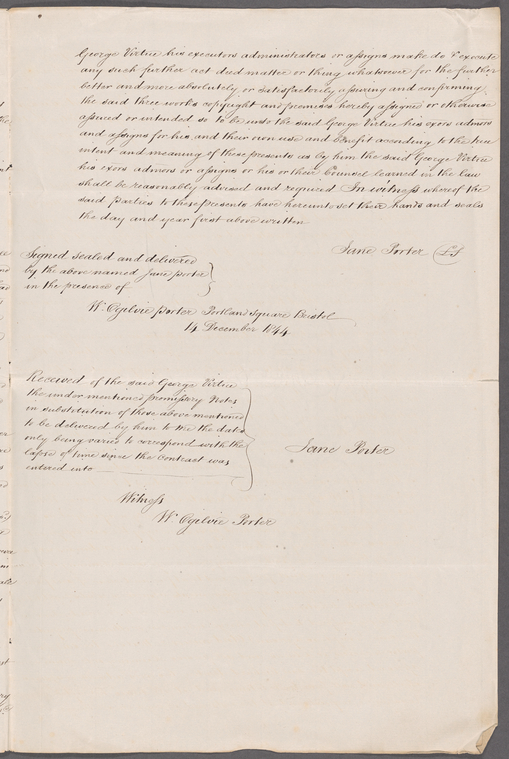 George Virtue his executors administrators or assigns make do & execute
any such further act deed matter or thing whatsoever for the further
better and more absolutely or satisfactorily assuring and confirming
the said three works copyright and premises hereby assigned or otherwise
assured or intended so to be unto the said George Virtue his exors admors
and assigns for his and their own use and benefit according to the true
intent and meaning of these presents as by him the said George Virtue
his exors admors or assigns or his or their Counsel learned in the law
shall be reasonably advised and required In witness whereof the
said parties to these presents have hereunto set their hands and seals
the day and year first above written
Jane Porter LS
Signed sealed and delivered
by the above named Jane Porter
in the presence of
Wm. Ogilvie Porter Portland Square Bristol
14 December 1844
Received of the said George Virtue
the under mentioned promissory Notes
in substitution of those above mentioned
to be delivered by him to me the dates
only being varied to correspond with the
lapse of time since the Contract was
entered into
Jane Porter
Witness
Wm. Ogilvie Porter